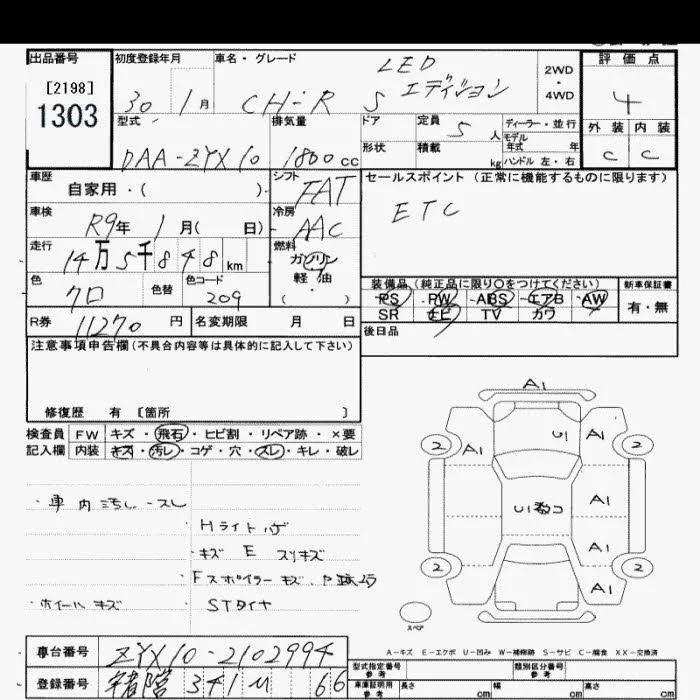 出品番号 初度登録年月 車名・グレード 評価点
[2198]
1303
30 1月 CH-R S LED エディション 2WD・4WD 4
型式 排気量 ドア 定員 5人 ディーラー・並行 外装 内装
モデル年式 年
DAA-ZYX10 1800cc 形状 積載 kg ハンドル 左・右 C C
車歴 自家用・( ) シフト FAT セールスポイント (正常に機能するものに限ります)
車検 R9年 1月( 日) 冷房 AAC ETC
走行 14万5千848km 燃料 ガソリン・軽油・( )
色 クロ 色替 色コード 209
装備品(純正品に限り○をつけてください) 新車保証書
PS PW ABS エアB AW 有・無
SR ナビ TV カワ
R券 11270円 名変期限 月 日 後日品
注意事項申告欄(不具合内容等は具体的に記入して下さい)
修復歴 有 [箇所 ]
検査員 FW キズ・飛石・ヒビ割・リペア跡・×要
記入欄 内装 キズ・汚レ・コゲ・穴・スレ・キレ・破レ
A1
U1 A1
2 A1 2
A1
A1
2 A1 2
スペア
・車内汚レ・スレ
Hライトハゲ
・キズ E スリキズ
Fスポイラーキズ
・ホイールキズ STタイヤ
A-キズ E-エクボ U-凹み W-補修跡 S-サビ C-腐食 XX-交換済
車台番号 ZYX10-2102994
登録番号 341 66
型式指定番号 参考 類別区分番号 参考
車庫証明用 参考 長さ cm 幅 cm 高さ cm